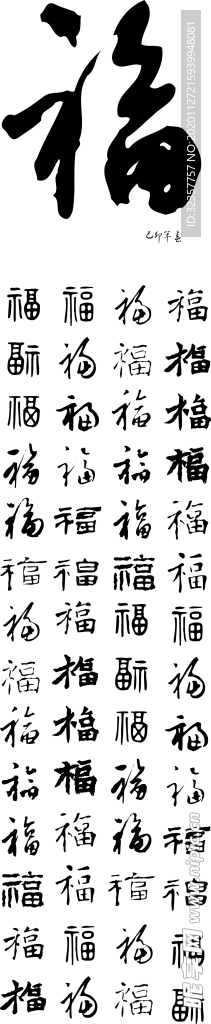 福
己卯年春
福 福 福 福
福 福 福 福
福 福 福 福
福 福 福 福
福 福 福 福
福 福 福 福
福 福 福 福
福 福 福 福
福 福 福 福
福 福 福 福
福 福 福 福
福 福 福 福
福 福 福 福
福 福 福 福
ID:32357757 NO:20201127215939948081
昵享网 www.nipic.cn